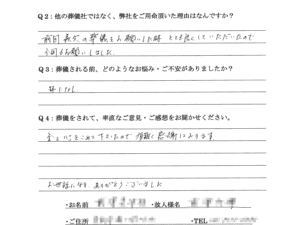 Q2：他の葬儀社ではなく、弊社をご用命頂いた理由はなんですか？
前回長女の葬儀をお願いした時とても良くしていただいたので
今回もお願いしました。
Q3：葬儀される前、どのようなお悩み・ご不安がありましたか？
特になし
Q4：葬儀をされて、率直なご意見・ご感想をお聞かせください。
心をこめて下さったので 感謝しております
お世話になり、ありがとうございました
・お名前 ・故人様名
・ご住所 ・TEL